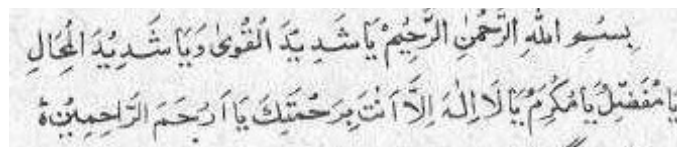 بِسْمِ اللهِ الرَّحْمٰنِ الرَّحِيْمِ يَا شَدِيْدَ الْقُوىٰ وَيَا شَدِيْدَ الْمِحَالِ
يَا مُفَضِّلُ يَا مُكْرِمُ يَا لَا اِلٰهَ اِلَّا اَنْتَ بِرَحْمَتِكَ يَا اَرْحَمَ الرَّاحِمِيْنَ ۃ